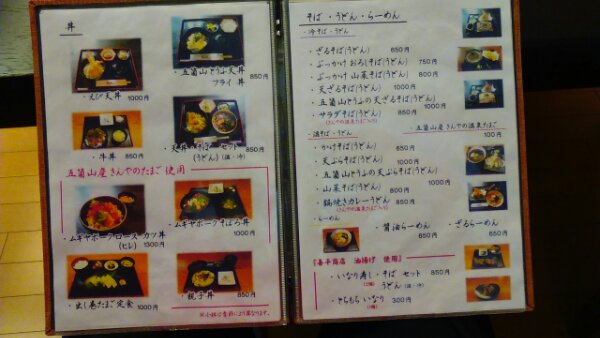 丼
・えび天丼 1000円
・五箇山とうふ天丼 850円
フライ丼
・牛丼 850円
・天丼のそばセット 850円
(うどん)(温・冷)
五箇山産さんやのたまご使用
・ムギヤポークロースカツ丼 1000円
(ヒレ) 1300円
・ムギヤポークそぼろ丼 1000円
・出し巻たまご定食 1000円
・親子丼 850円
※小鉢は季節により異なります。
そば・うどん・らーめん
・冷そば・うどん
・ざるそば(うどん) 650円
・ぶっかけおろしそば(うどん) 750円
・ぶっかけ山菜そば(うどん) 800円
・天ざるそば(うどん) 1000円
・五箇山とうふの天ざるそば(うどん) 1000円
・サラダそば(うどん) 850円
(さんやの温泉たまご入り)
・五箇山さんやの温泉たまご 100円
・温そば・うどん
・かけそば(うどん) 650円
・天ぷらそば(うどん) 1000円
・五箇山とうふの天ぷらそば(うどん) 1000円
・山菜そば(うどん) 800円
・鍋焼きカレーうどん 850円
(さんやの温泉たまご入り)
・らーめん
・醤油らーめん 650円
・ざるらーめん 650円
【喜平商店 油揚げ 使用】
・いなり寿し・そば セット 850円
(2個) うどん (温・冷)
・とちもち いなり 300円
(2個)